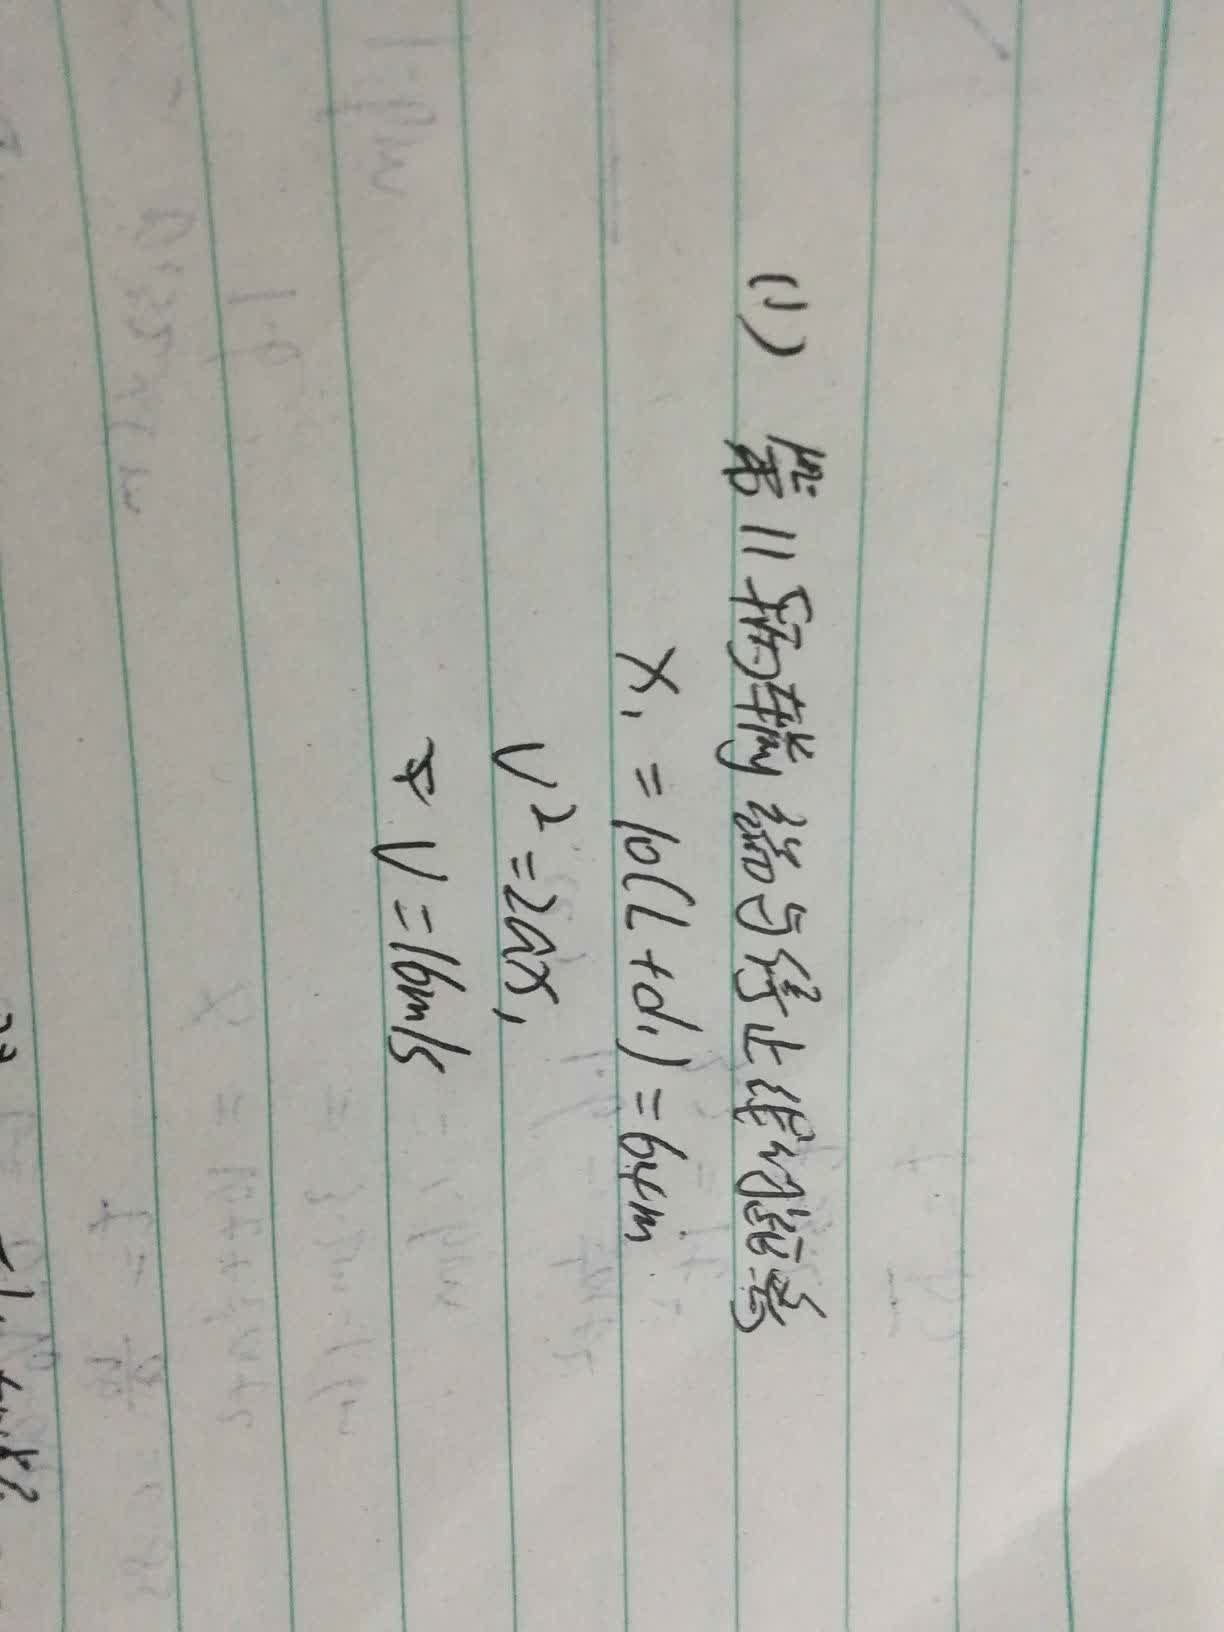 (1) 第11辆车前端与停止线的距离
x₁=10(L+d₁)=64m
V²=2ax₁
V=16m/s